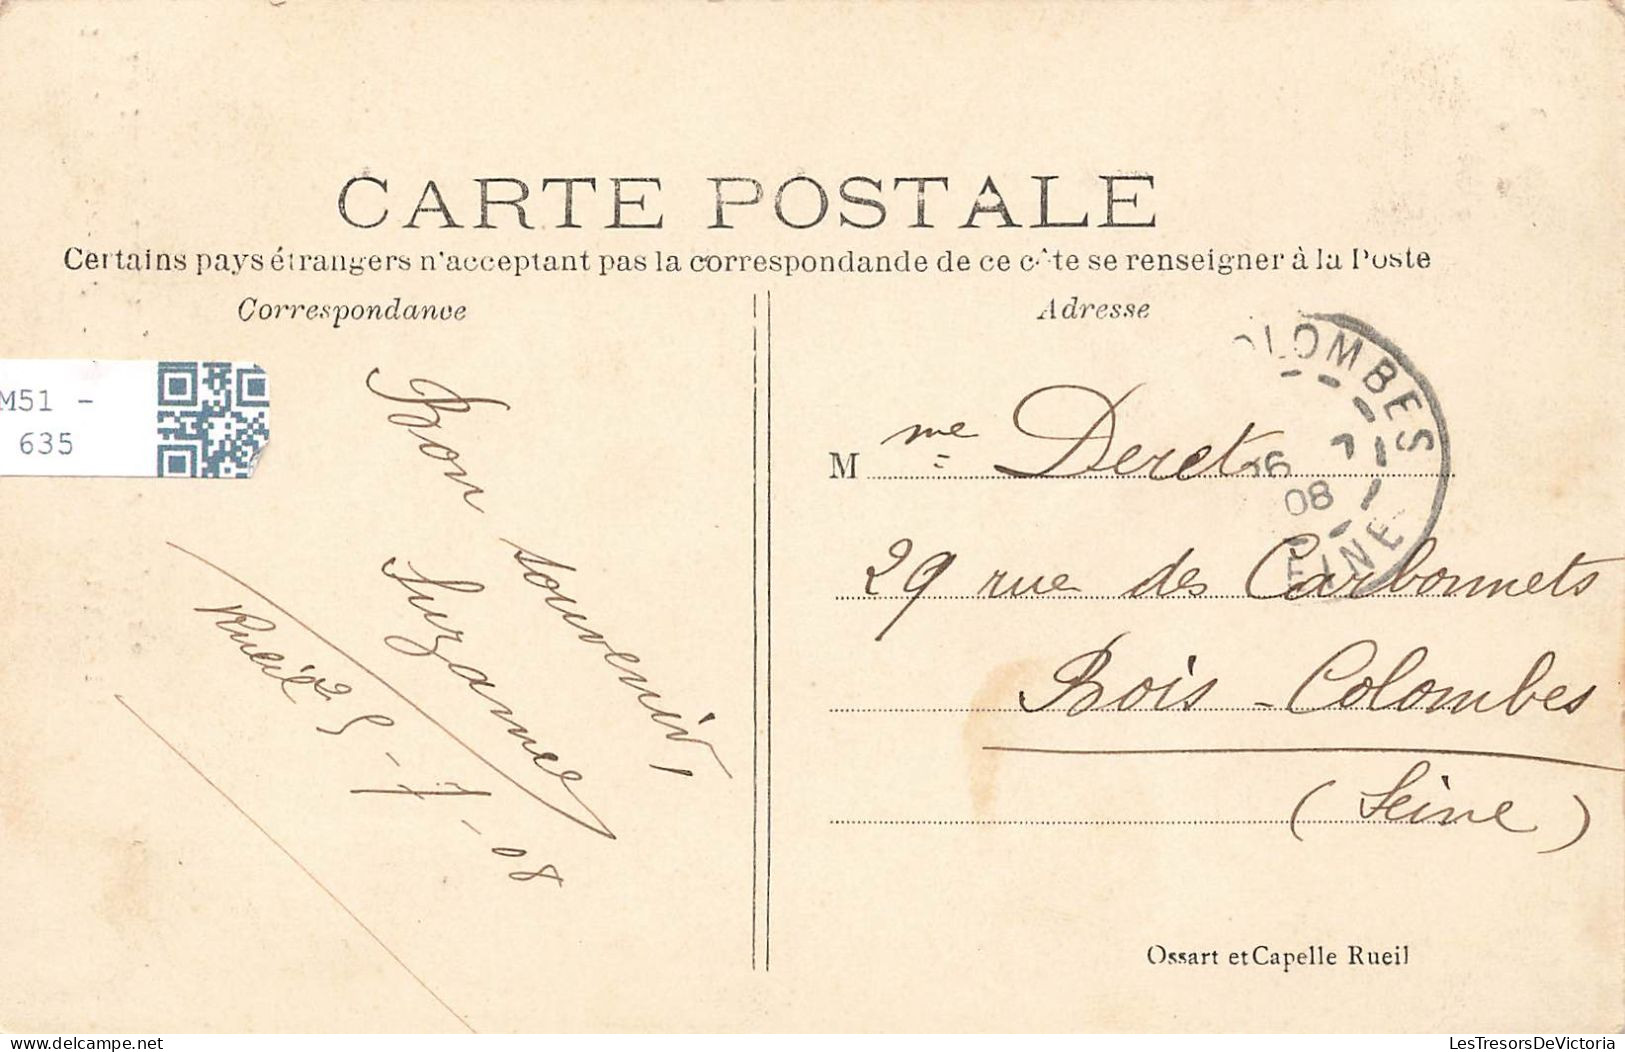 CARTE POSTALE
Certains pays étrangers n'acceptant pas la correspondande de ce côte se renseigner à la Poste
Correspondance
Adresse
M51 -
635
Bon souvenir
Suzanne
Rueil 25-7-08
COLOMBES
26 7
08
SEINE
Mme Deret
29 rue des Carbonnets
Bois-Colombes
(Seine)
Ossart et Capelle Rueil
delcampe.net
LesTresorsDeVictoria